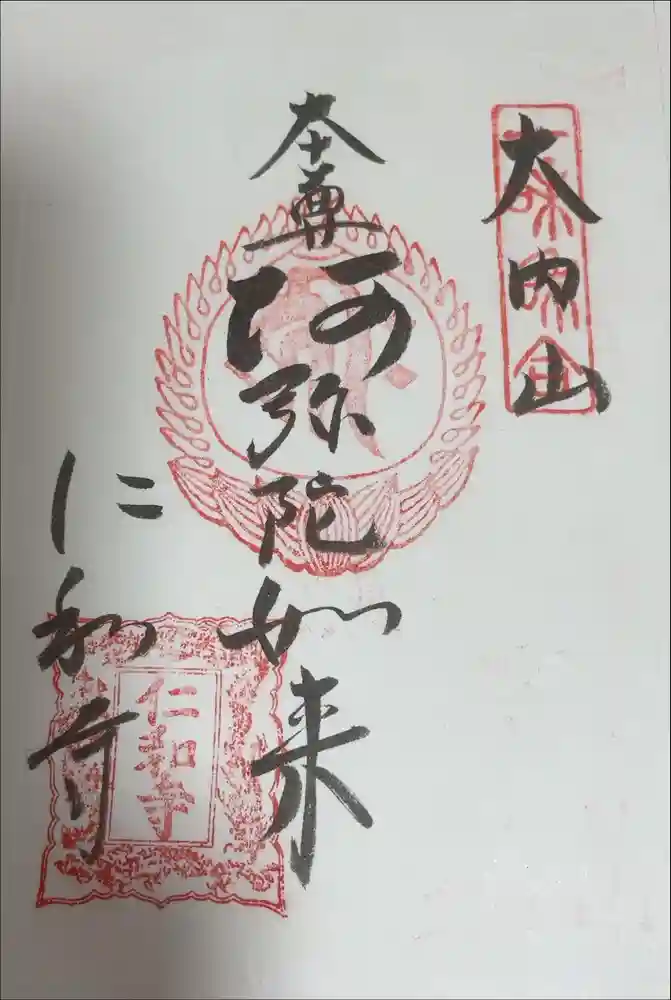 大内山
本尊
阿弥陀如来
仁和寺
仁和寺